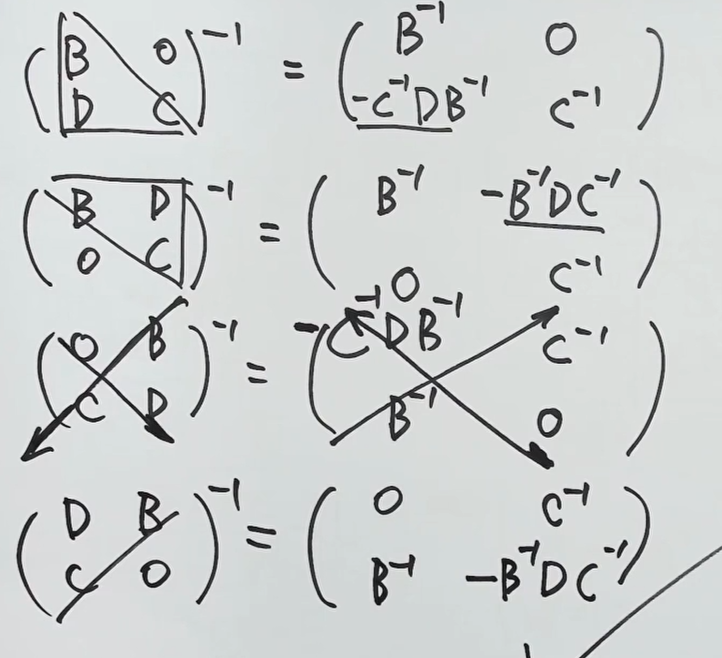 (B O; D C)⁻¹ = (B⁻¹ O; -C⁻¹DB⁻¹ C⁻¹)
(B D; O C)⁻¹ = (B⁻¹ -B⁻¹DC⁻¹; O C⁻¹)
(O B; C D)⁻¹ = (-C⁻¹DB⁻¹ C⁻¹; B⁻¹ O)
(D B; C O)⁻¹ = (O C⁻¹; B⁻¹ -B⁻¹DC⁻¹)